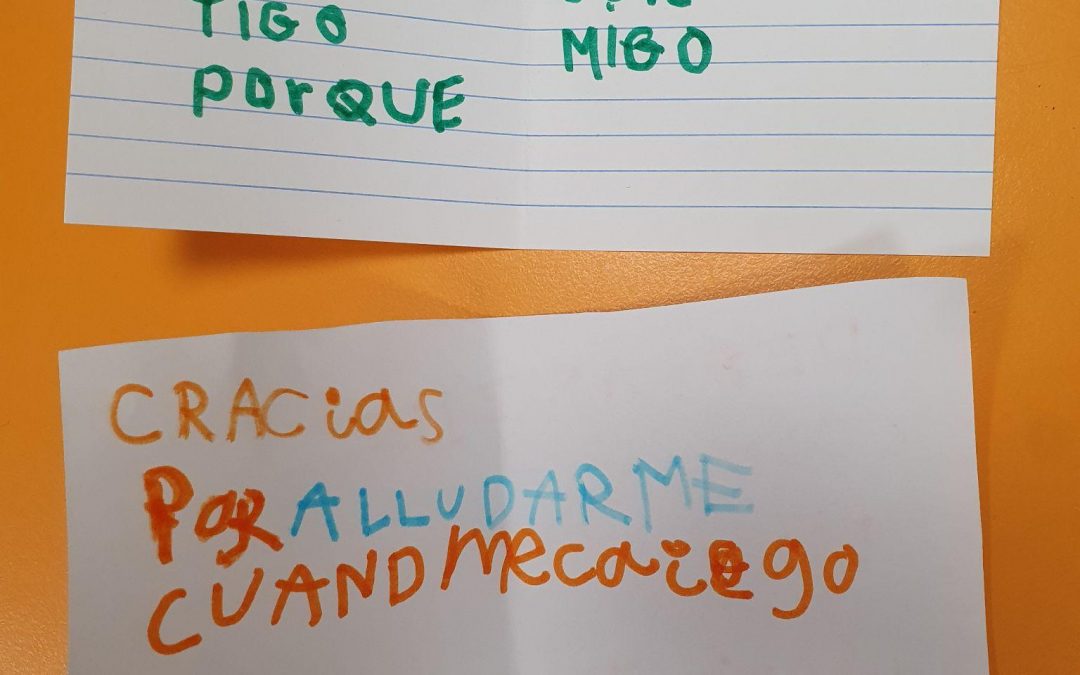 TIGO
MIGO
PorQUE
CRACias
Por ALLUDARME
CUANDmecaiego